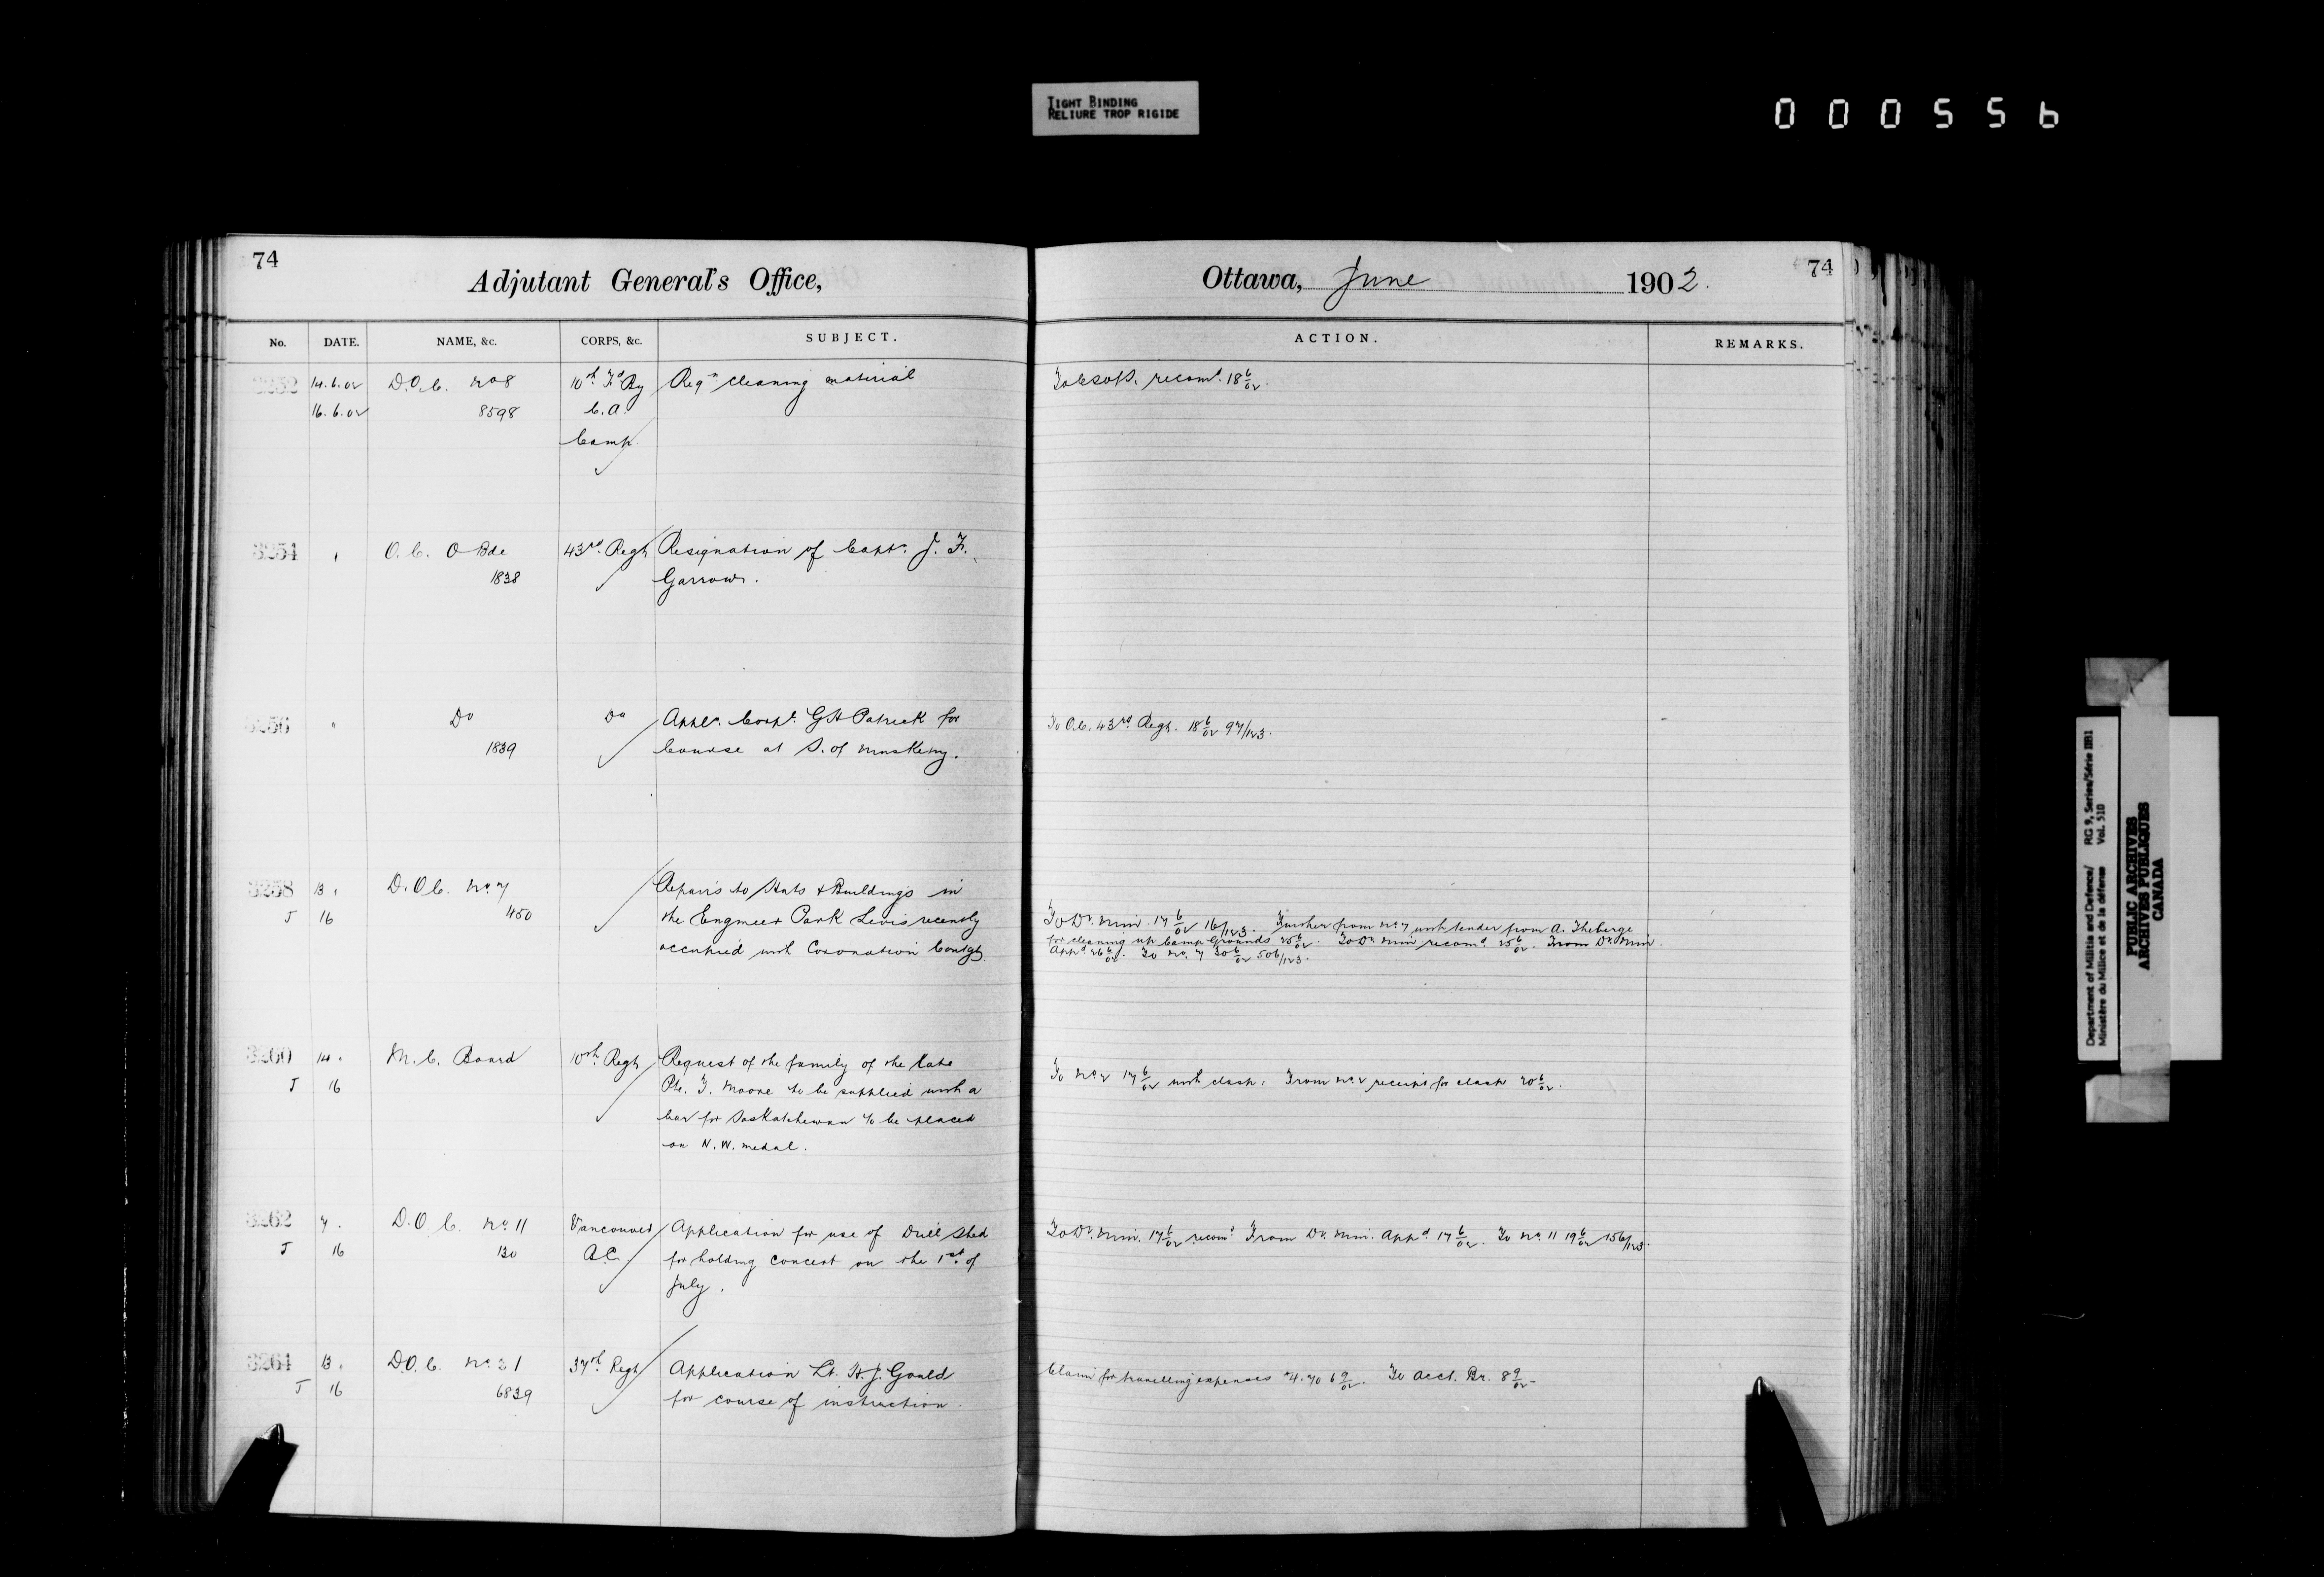 TIGHT BINDING
RELIURE TROP RIGIDE
000556
74
Adjutant General's Office,
Ottawa, June 1902.
74
No. DATE. NAME, &c. CORPS, &c. SUBJECT.
ACTION. REMARKS.
3252 14.6.02 D.O.C. No 8 10th Fd By Reqn cleaning material
16.6.02 8598 C.A.
Camp.
recomd. 18 6/02.
3254 " O.C. O Bde 43rd. Regt Resignation of Capt. J. F.
1838 Garrow.
3256 " Do Do Appln. Corpl. G H Patrick for
1839 Course at S. of Musketry.
To O.C. 43rd. Regt. 18 6/02 97/123.
3258 13 " D.O.C. No. 7 Repairs to Huts & Buildings in
J 16 450 the Engineer Park Levis recently
occupied with Coronation Contgt.
To Dr. Min. 17 6/02 16/123. Further from No. 7 with tender from A. Theberge
for cleaning up Camp Grounds 25 6/02. To Dr. Min recomd. 25 6/02. From Dr. Min.
Appd 26 6/02. To No. 7 30 6/02 506/123.
3260 14 " M.C. Board 10th. Regt Request of the family of the late
J 16 Pte. T. Moore to be supplied with a
bar for Saskatchewan to be placed
on N.W. medal.
To No. 2 17 6/02 with clasp. From No. 2 receipt for clasp 20 6/02.
3262 7 " D.O.C. No. 11 Vancouver Application for use of Drill Shed
J 16 130 B.C. for holding concert on the 1st. of
July.
To Dr. Min. 17 6/02 recomd From Dr. Min. Appd 17 6/02. To No. 11 19 6/02 156/123.
3264 13 " D.O.C. No. 37th. Regt Application Lt. H. J. Gould
J 16 6839 for course of instruction.
Claim for travelling expenses 4.70 6 9/02. To Acct. Br. 8 9/02
Department of Militia and Defence/ RG 9, Series/Série IIB1
Ministère du Milice et de la défense Vol. 510
PUBLIC ARCHIVES
ARCHIVES PUBLIQUES
CANADA